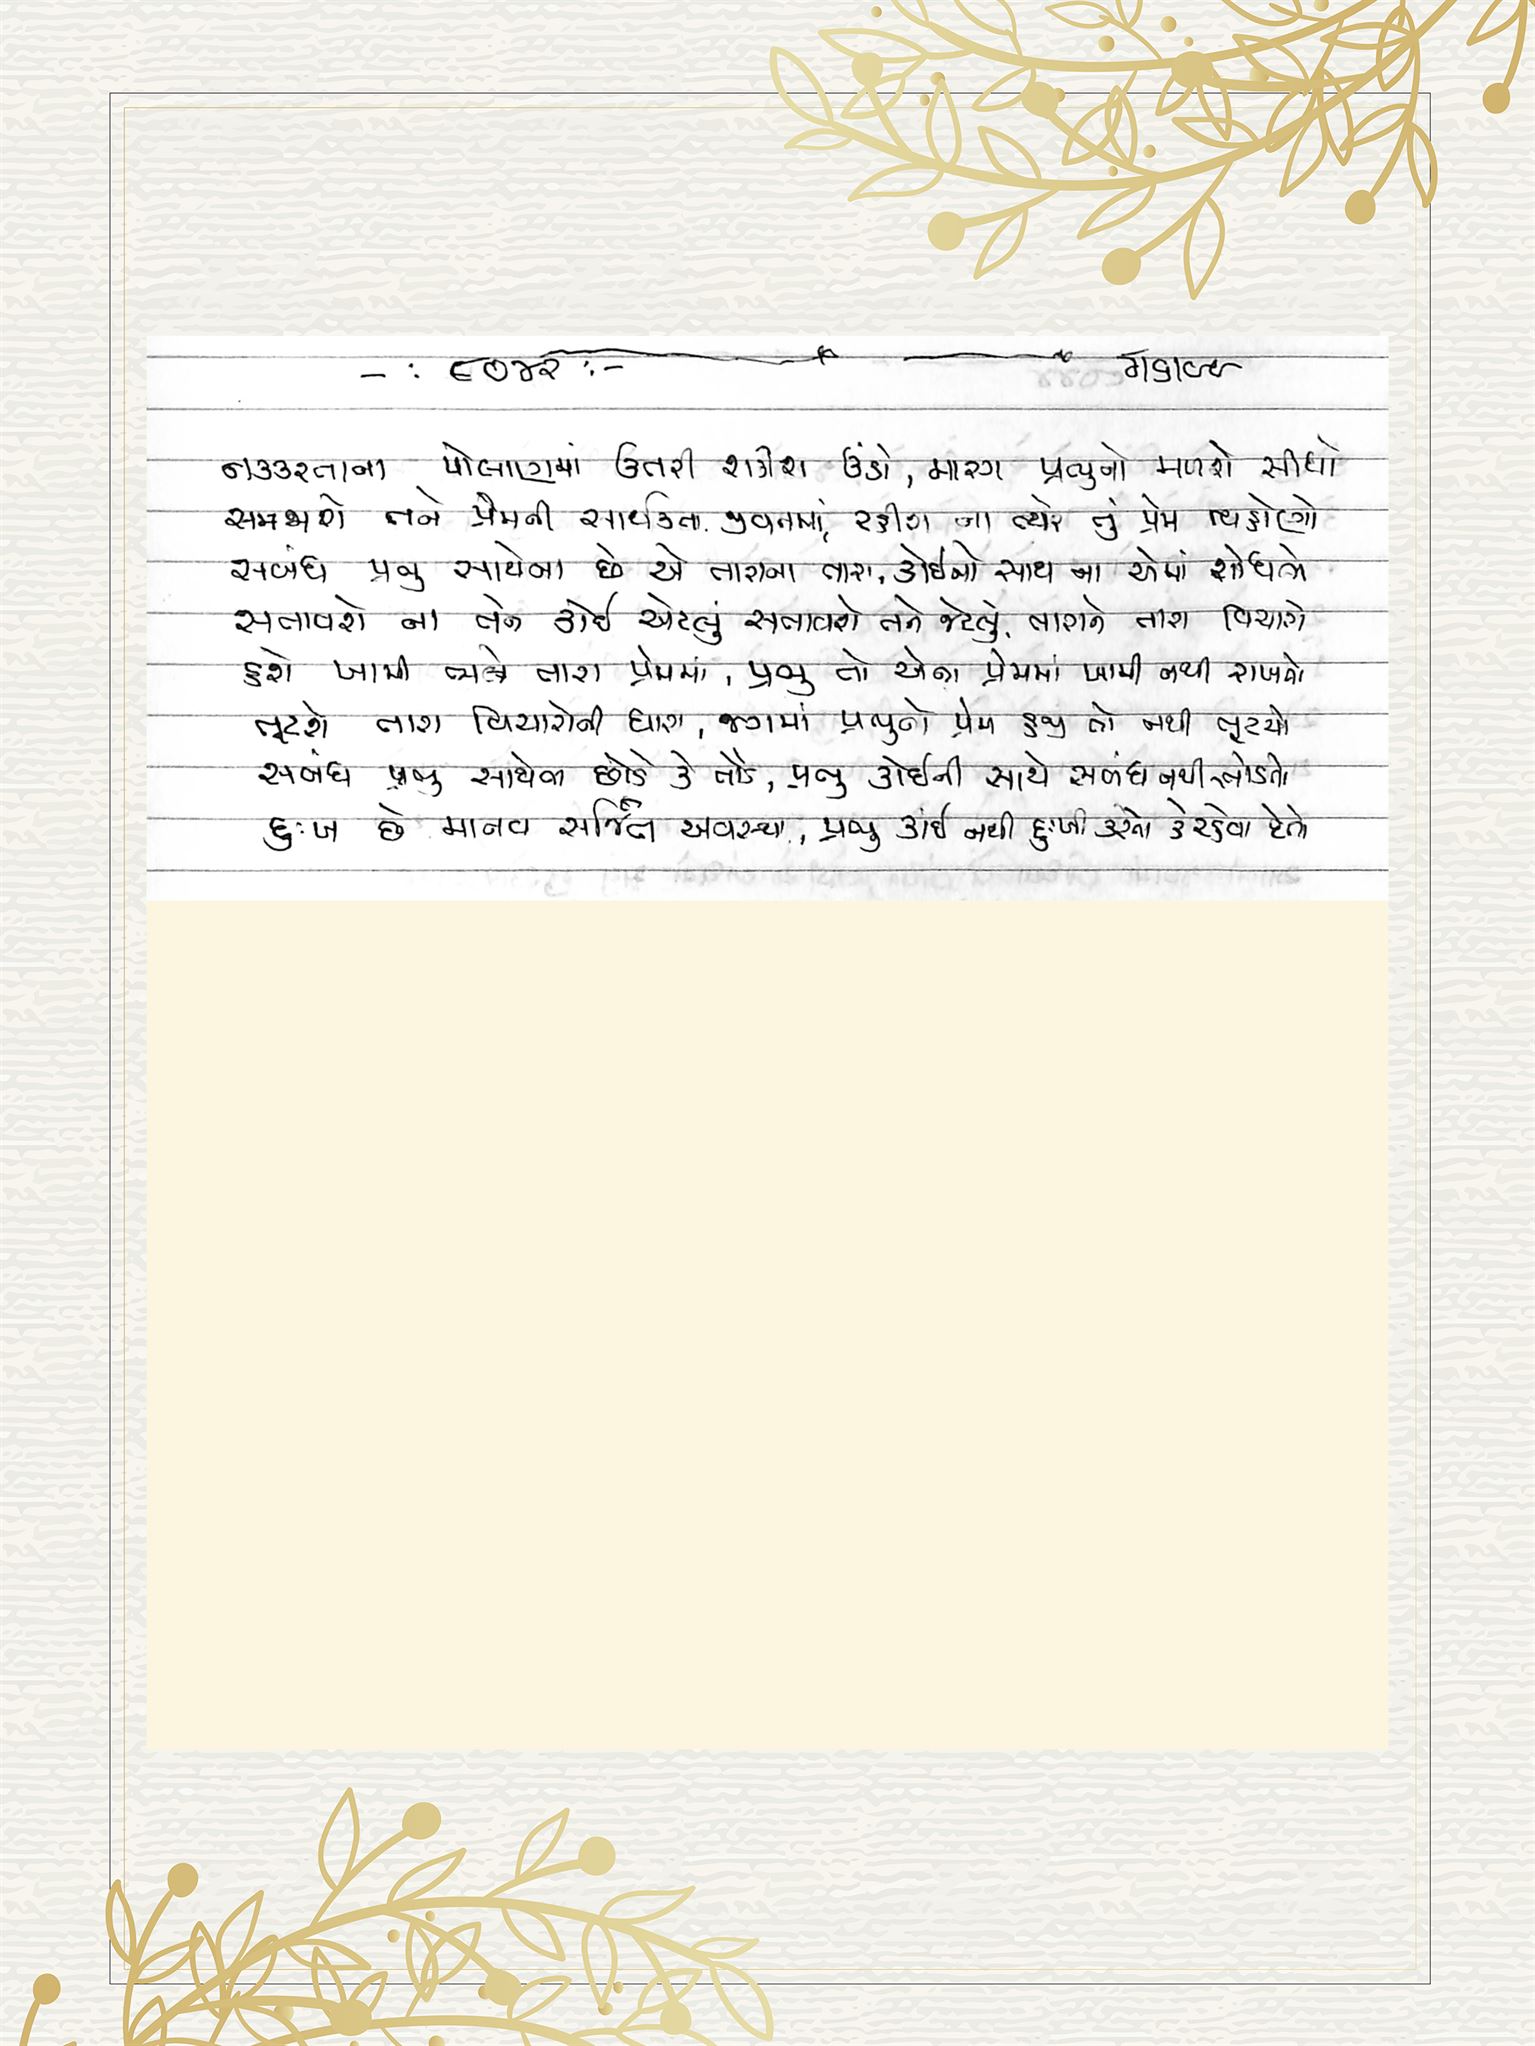 -: ૯૦૪૨ :-
નક્કરતાના પોલાણમાં ઉતરી શકીશ ઉંડો, મારગ પ્રભુનો મળશે સીધો
સમજાશે તને પ્રેમની સાર્થકતા જીવનમાં, રહીશ ના ત્યારે તું પ્રેમ વિહોણો
સબંધ પ્રભુ સાથેના છે એ તારાના તારા, કોઈનો સાથ ના એમાં શોધજે
સતાવશે ના તને કોઈ એટલું સતાવશે તને જેટલું, તારાને તારા વિચારો
હશે ખામી ભલે તારા પ્રેમમાં, પ્રભુ તો એના પ્રેમમાં ખામી નથી રાખતો
તૂટશે તારા વિચારોની ધારા, જગમાં પ્રભુનો પ્રેમ હજી તો નથી તૂટયો
સબંધ પ્રભુ સાથેના છોડે કે તોડે, પ્રભુ કોઈની સાથે સબંધ નથી તોડતો
દુઃખ છે માનવ સર્જિત અવસ્થા, પ્રભુ કાંઈ નથી દુઃખી કરતો કે રહેવા દેતો